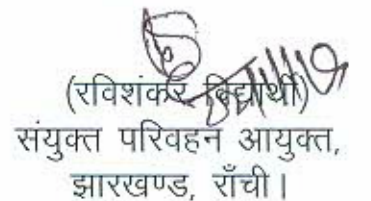 (रविशंकर विद्यार्थी)
संयुक्त परिवहन आयुक्त,
झारखण्ड, राँची।